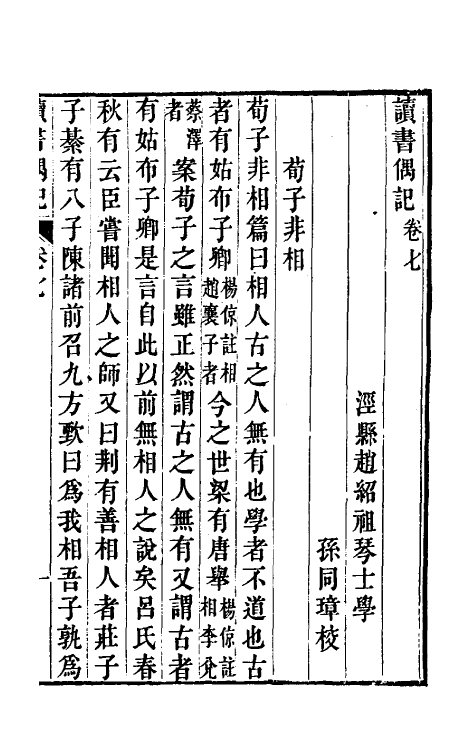 讀書偶記卷七
涇縣趙紹祖琴士學
孫同璋校
荀子非相
荀子非相篇曰相人古之人無有也學者不道也古
者有姑布子卿楊倞註相趙襄子者今之世梁有唐舉楊倞註相李兌
蔡澤者案荀子之言雖正然謂古之人無有又謂古者
有姑布子卿是言自此以前無相人之說矣呂氏春
秋有云臣嘗聞相人之師又曰荆有善相人者莊子
子綦有八子陳諸前召九方歅曰為我相吾子孰為
讀書偶記 卷七 一